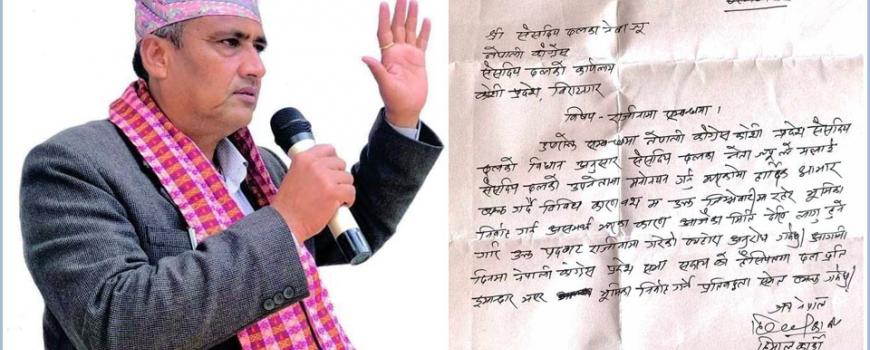 श्री संसदिय दलका नेता ज्यू
नेपाली काँग्रेस
संसदिय दलको कार्यालय
कोशी प्रदेश, विराटनगर
विषय - राजीनामा सम्बन्धमा ।
उपरोक्त सम्बन्धमा नेपाली काँग्रेस कोशी प्रदेश संसदिय
दलको विधान अनुसार संसदिय दलका नेता ज्यू ले मलाई
संसदिय दलको उपनेतामा मनोनयन गर्नु भएकोमा हार्दिक आभार
व्यक्त गर्दै विविध कारणवश म उक्त जिम्मेवारीमा रहेर भूमिका
निर्वाह गर्न असमर्थ भएका कारण आजैका मिति देखि लागु हुने
गरि उक्त पदबाट राजीनामा गरेको व्यहोरा अनुरोध गर्दछु। आगामी
दिनमा नेपाली काँग्रेस प्रदेश सभा सदस्य को हैसियतमा दल प्रति
इमान्दार भएर भूमिका निर्वाह गर्ने प्रतिबद्धता समेत व्यक्त गर्दछु।
जय नेपाल
हिमाल कार्की